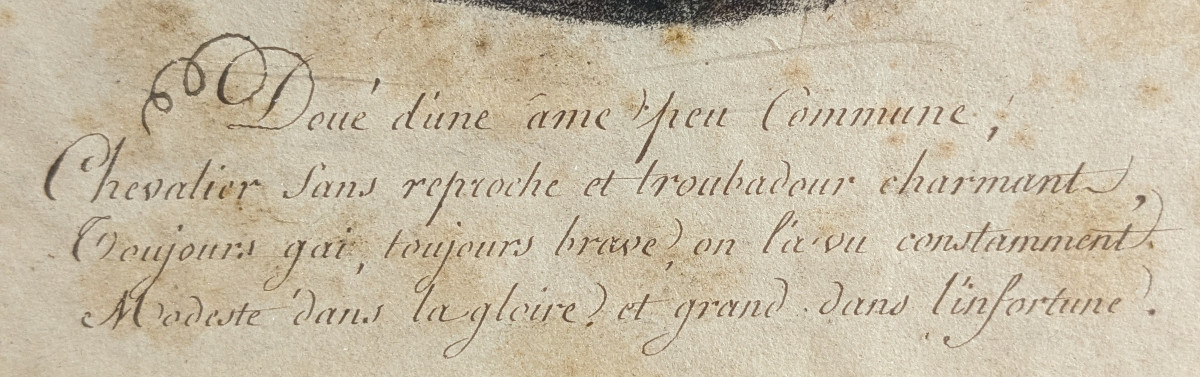 Doué d'une âme peu Commune,
Chevalier Sans reproche et troubadour charmant,
Toujours gai, toujours brave, on l'a vu constamment
Modeste dans la gloire, et grand dans l'infortune.